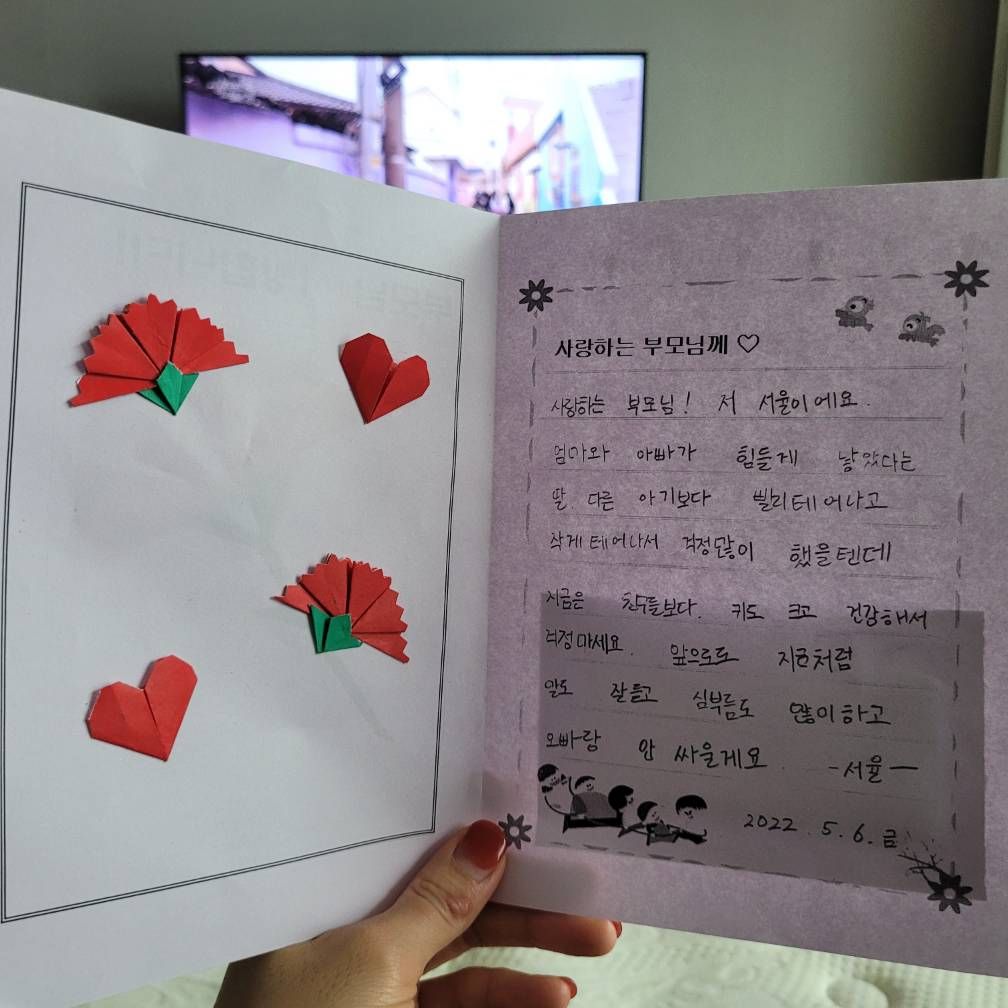 사랑하는 부모님께 ♡
사랑하는 부모님! 저 서율이에요.
엄마와 아빠가 힘들게 낳았다는
딸. 다른 아기보다 빨리 테어나고
작게 테어나서 걱정많이 했을텐데
지금은 친구들보다. 키도 크고 건강해서
걱정마세요. 앞으로도 지금처럼
말도 잘듣고 심부름도 많이하고
오빠랑 안 싸울게요. -서율-
2022. 5. 6. 금